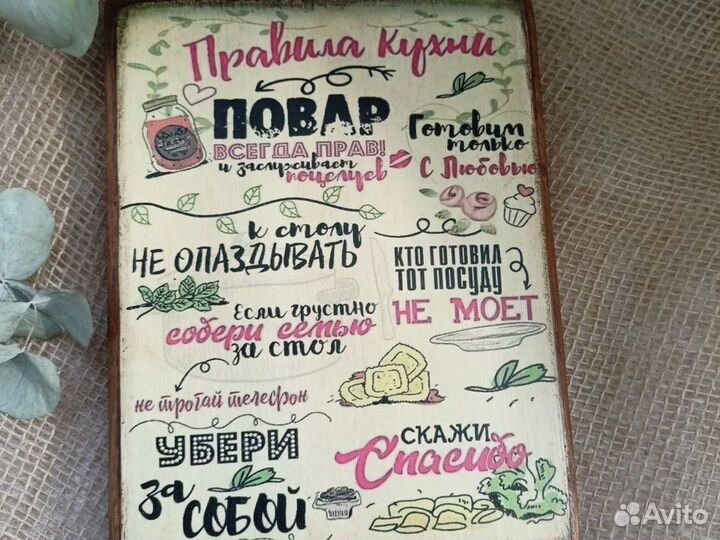 Правила Кухни
ПОВАР
ВСЕГДА ПРАВ!
и заслуживает
поцелуев
Готовим
только
С Любовью
к столу
НЕ ОПАЗДЫВАТЬ
КТО ГОТОВИЛ
ТОТ ПОСУДУ
НЕ МОЕТ
Если грустно
собери семью
за стол
не трогай телефон
УБЕРИ
за
СОБОЙ
СКАЖИ
Спасибо
Avito